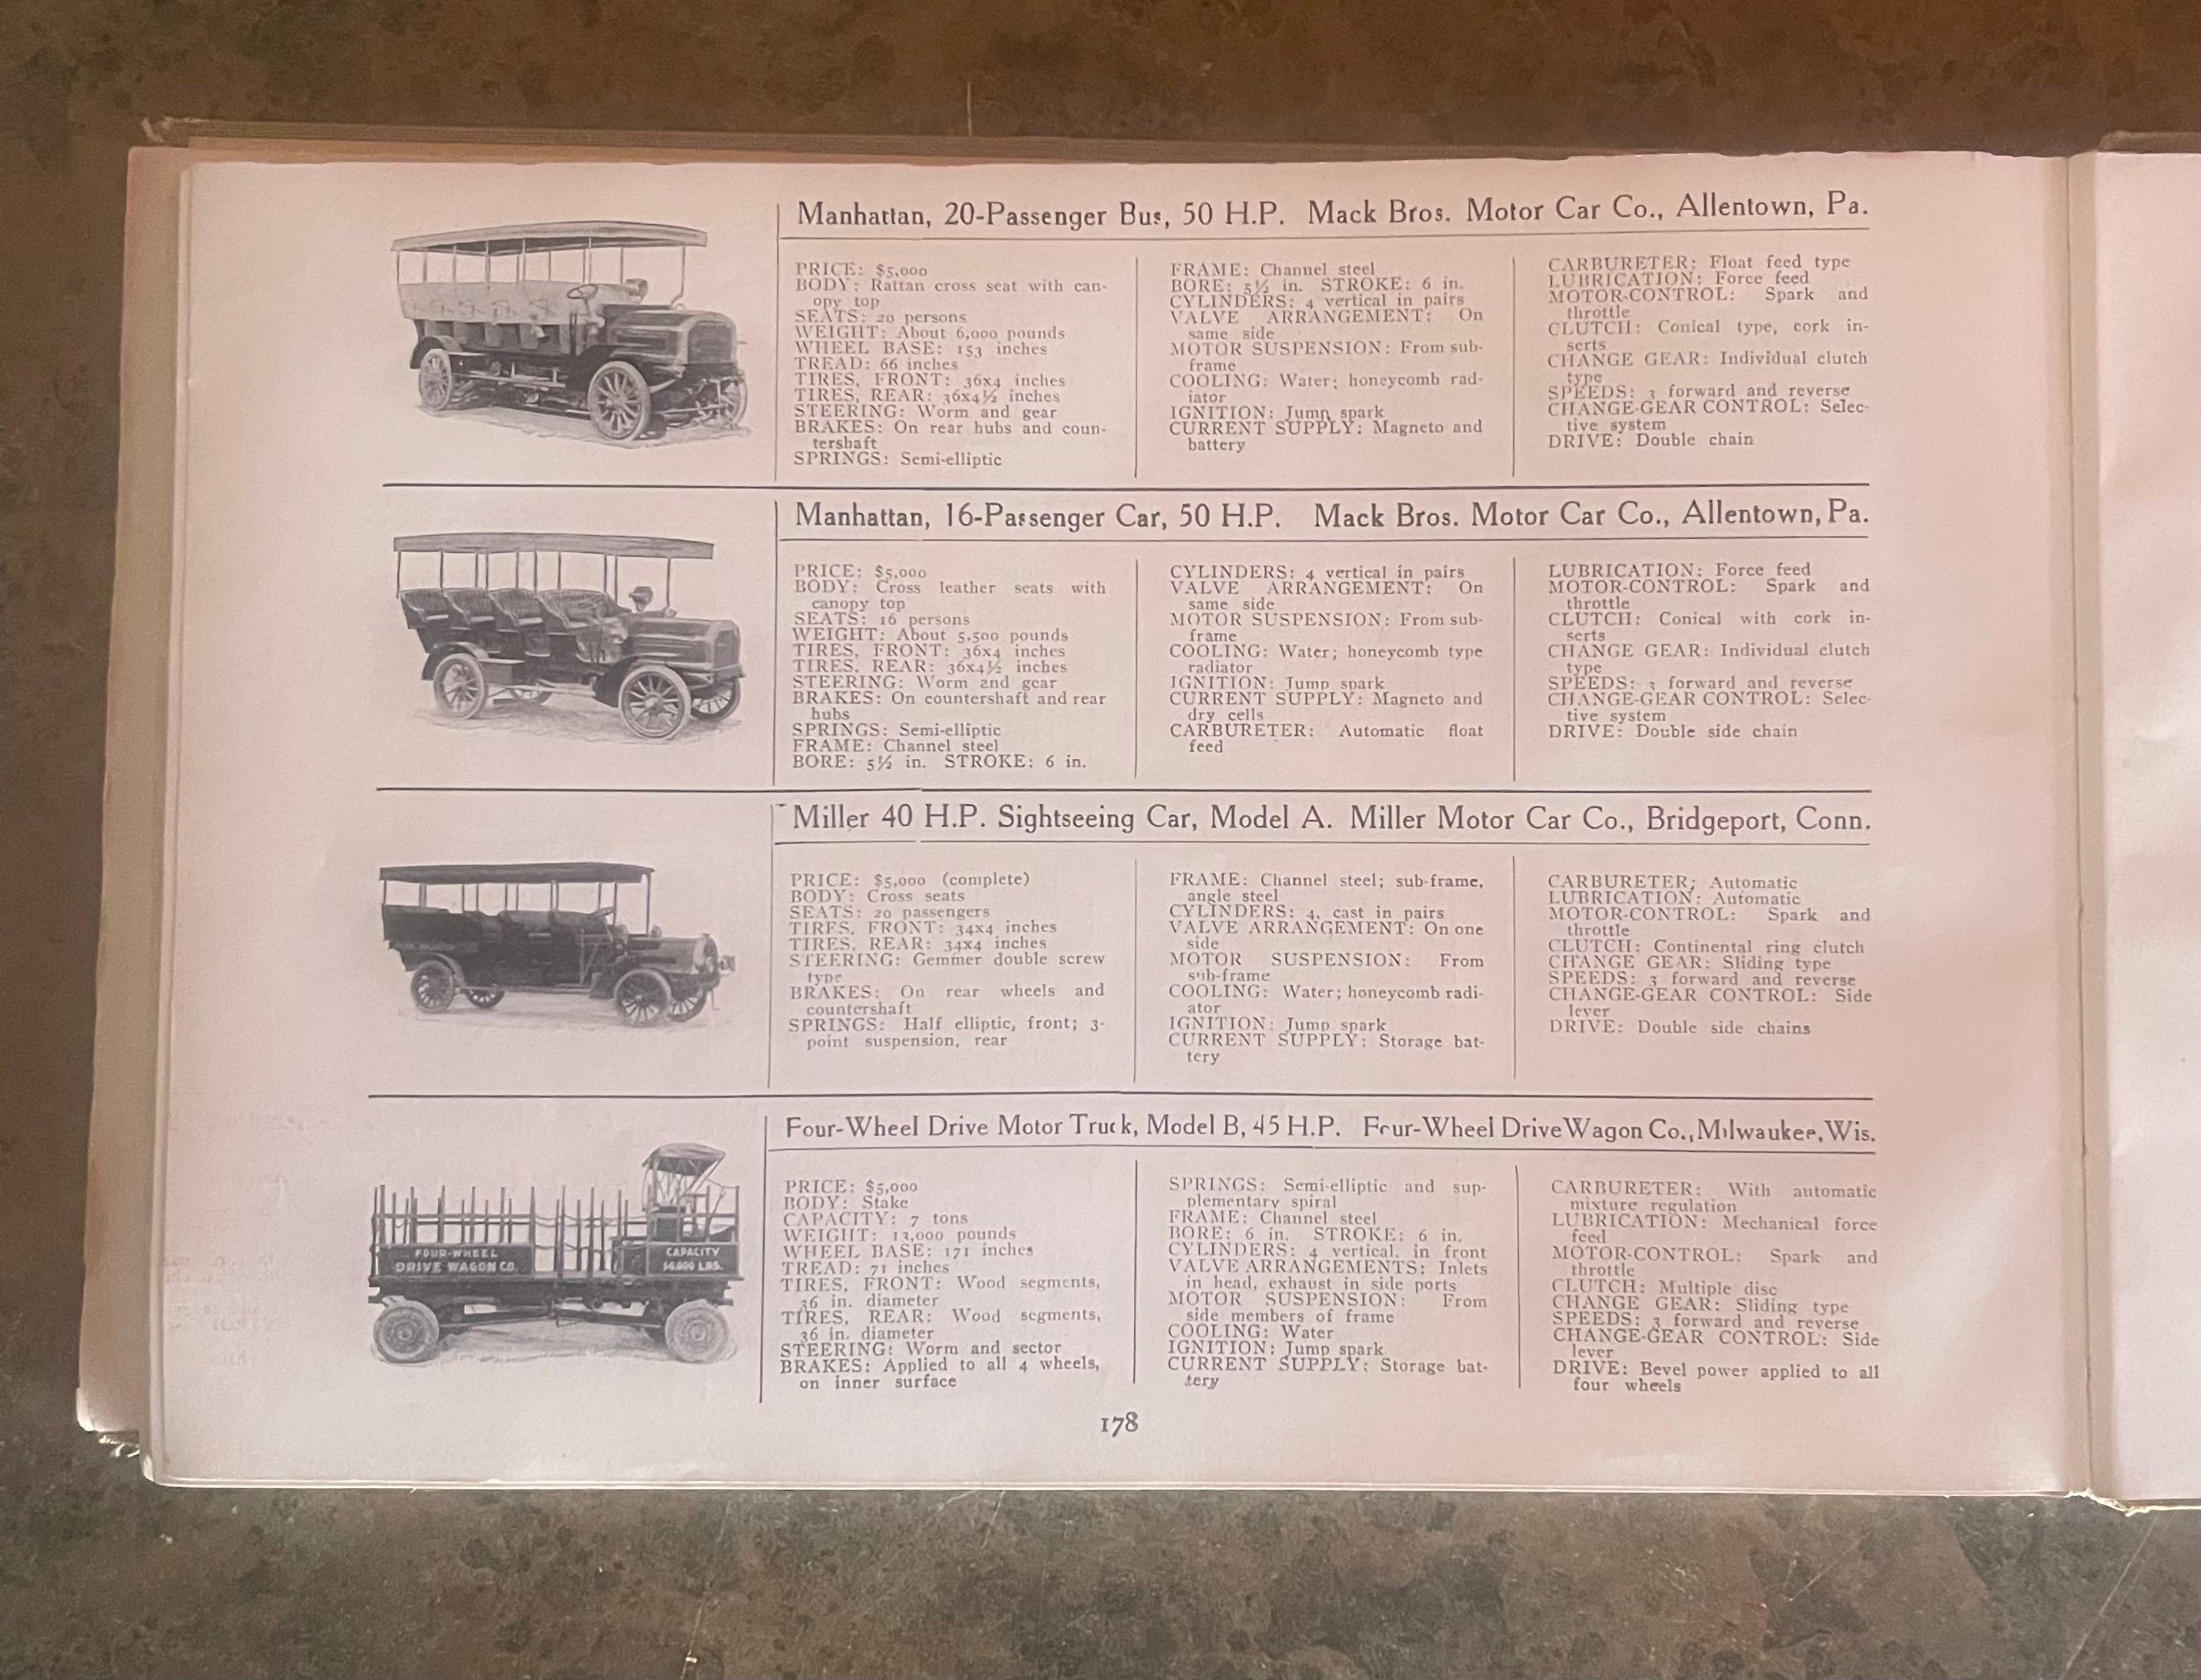 Manhattan, 20-Passenger Bus, 50 H.P. Mack Bros. Motor Car Co., Allentown, Pa.
PRICE: $5,000
BODY: Rattan cross seat with can-
opy top
SEATS: 20 persons
WEIGHT: About 6,000 pounds
WHEEL BASE: 153 inches
TREAD: 66 inches
TIRES, FRONT: 36x4 inches
TIRES, REAR: 36x4½ inches
STEERING: Worm and gear
BRAKES: On rear hubs and coun-
tershaft
SPRINGS: Semi-elliptic
FRAME: Channel steel
BORE: 5½ in. STROKE: 6 in.
CYLINDERS: 4 vertical in pairs
VALVE ARRANGEMENT: On
same side
MOTOR SUSPENSION: From sub-
frame
COOLING: Water; honeycomb rad-
iator
IGNITION: Jump spark
CURRENT SUPPLY: Magneto and
battery
CARBURETER: Float feed type
LUBRICATION: Force feed
MOTOR-CONTROL: Spark and
throttle
CLUTCH: Conical type, cork in-
serts
CHANGE GEAR: Individual clutch
type
SPEEDS: 3 forward and reverse
CHANGE-GEAR CONTROL: Selec-
tive system
DRIVE: Double chain
Manhattan, 16-Passenger Car, 50 H.P. Mack Bros. Motor Car Co., Allentown, Pa.
PRICE: $5,000
BODY: Cross leather seats with
canopy top
SEATS: 16 persons
WEIGHT: About 5,500 pounds
TIRES, FRONT: 36x4 inches
TIRES, REAR: 36x4½ inches
STEERING: Worm and gear
BRAKES: On countershaft and rear
hubs
SPRINGS: Semi-elliptic
FRAME: Channel steel
BORE: 5½ in. STROKE: 6 in.
CYLINDERS: 4 vertical in pairs
VALVE ARRANGEMENT: On
same side
MOTOR SUSPENSION: From sub-
frame
COOLING: Water; honeycomb type
radiator
IGNITION: Jump spark
CURRENT SUPPLY: Magneto and
dry cells
CARBURETER: Automatic float
feed
LUBRICATION: Force feed
MOTOR-CONTROL: Spark and
throttle
CLUTCH: Conical with cork in-
serts
CHANGE GEAR: Individual clutch
type
SPEEDS: 3 forward and reverse
CHANGE-GEAR CONTROL: Selec-
tive system
DRIVE: Double side chain
Miller 40 H.P. Sightseeing Car, Model A. Miller Motor Car Co., Bridgeport, Conn.
PRICE: $5,000 (complete)
BODY: Cross seats
SEATS: 20 passengers
TIRES, FRONT: 34x4 inches
TIRES, REAR: 34x4 inches
STEERING: Gemmer double screw
type
BRAKES: On rear wheels and
countershaft
SPRINGS: Half elliptic, front; 3-
point suspension, rear
FRAME: Channel steel; sub-frame,
angle steel
CYLINDERS: 4, cast in pairs
VALVE ARRANGEMENT: On one
side
MOTOR SUSPENSION: From
sub-frame
COOLING: Water; honeycomb radi-
ator
IGNITION: Jump spark
CURRENT SUPPLY: Storage bat-
tery
CARBURETER: Automatic
LUBRICATION: Automatic
MOTOR-CONTROL: Spark and
throttle
CLUTCH: Continental ring clutch
CHANGE GEAR: Sliding type
SPEEDS: 3 forward and reverse
CHANGE-GEAR CONTROL: Side
lever
DRIVE: Double side chains
Four-Wheel Drive Motor Truck, Model B, 45 H.P. Four-Wheel Drive Wagon Co., Milwaukee, Wis.
FOUR-WHEEL
DRIVE WAGON CO.
CAPACITY
14,000 LBS.
PRICE: $5,000
BODY: Stake
CAPACITY: 7 tons
WEIGHT: 13,000 pounds
WHEEL BASE: 171 inches
TREAD: 71 inches
TIRES, FRONT: Wood segments,
36 in. diameter
TIRES, REAR: Wood segments,
36 in. diameter
STEERING: Worm and sector
BRAKES: Applied to all 4 wheels,
on inner surface
SPRINGS: Semi-elliptic and sup-
plementary spiral
FRAME: Channel steel
BORE: 6 in. STROKE: 6 in.
CYLINDERS: 4 vertical, in front
VALVE ARRANGEMENTS: Inlets
in head, exhaust in side ports
MOTOR SUSPENSION: From
side members of frame
COOLING: Water
IGNITION: Jump spark
CURRENT SUPPLY: Storage bat-
tery
CARBURETER: With automatic
mixture regulation
LUBRICATION: Mechanical force
feed
MOTOR-CONTROL: Spark and
throttle
CLUTCH: Multiple disc
CHANGE GEAR: Sliding type
SPEEDS: 3 forward and reverse
CHANGE-GEAR CONTROL: Side
lever
DRIVE: Bevel power applied to all
four wheels
178